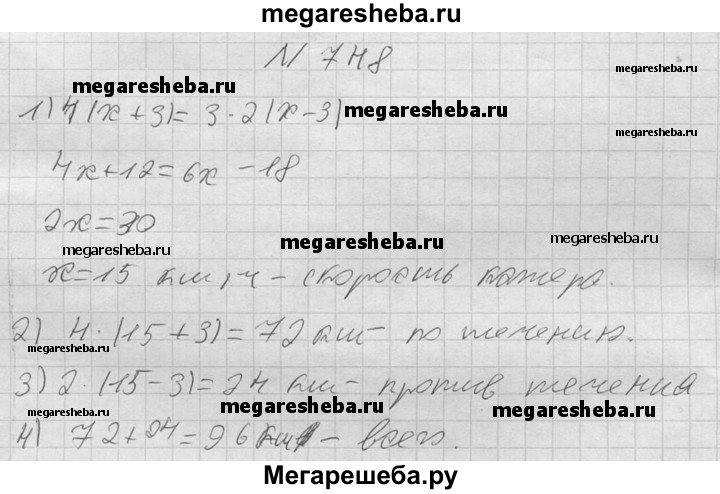 megaresheba.ru
N 748
megaresheba.ru
megaresheba.ru
1) 4(x+3)= 3·2(x-3) megaresheba.ru
megaresheba.ru
4x+12=6x-18
2x=30
megaresheba.ru megaresheba.ru megaresheba.ru
x=15 км/ч - скорость катера.
2) 4·(15+3)=72 км - по течению.
megaresheba.ru
3) 2·(15-3)=24 км - против течения
megaresheba.ru megaresheba.ru megaresheba.ru
4) 72+24=96 км - всего.
Мегарешеба.ру